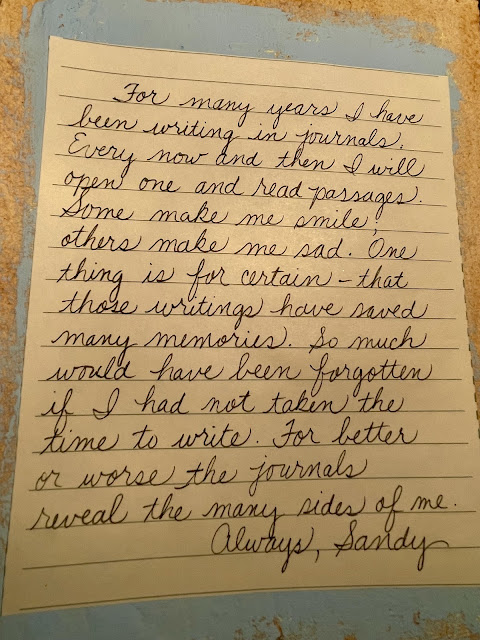 For many years I have
been writing in journals.
Every now and then I will
open one and read passages.
Some make me smile;
others make me sad. One
thing is for certain - that
those writings have saved
many memories. So much
would have been forgotten
if I had not taken the
time to write. For better
or worse the journals
reveal the many sides of me.
Always, Sandy